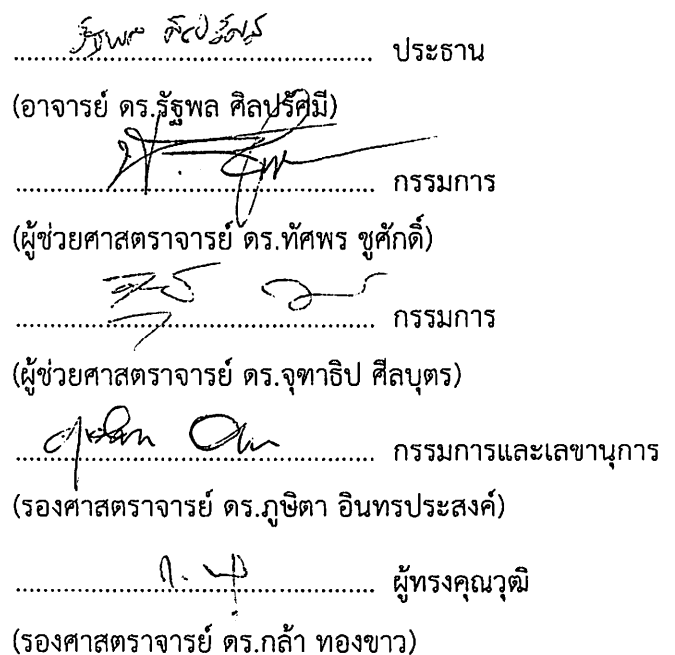 รัฐพล ศิลปรัศมี
........................................ ประธาน
(อาจารย์ ดร.รัฐพล ศิลปรัศมี)
........................................ กรรมการ
(ผู้ช่วยศาสตราจารย์ ดร.ทัศพร ชูศักดิ์)
........................................ กรรมการ
(ผู้ช่วยศาสตราจารย์ ดร.จุฑาธิป ศีลบุตร)
........................................ กรรมการและเลขานุการ
(รองศาสตราจารย์ ดร.ภูษิตา อินทรประสงค์)
........................................ ผู้ทรงคุณวุฒิ
(รองศาสตราจารย์ ดร.กล้า ทองขาว)